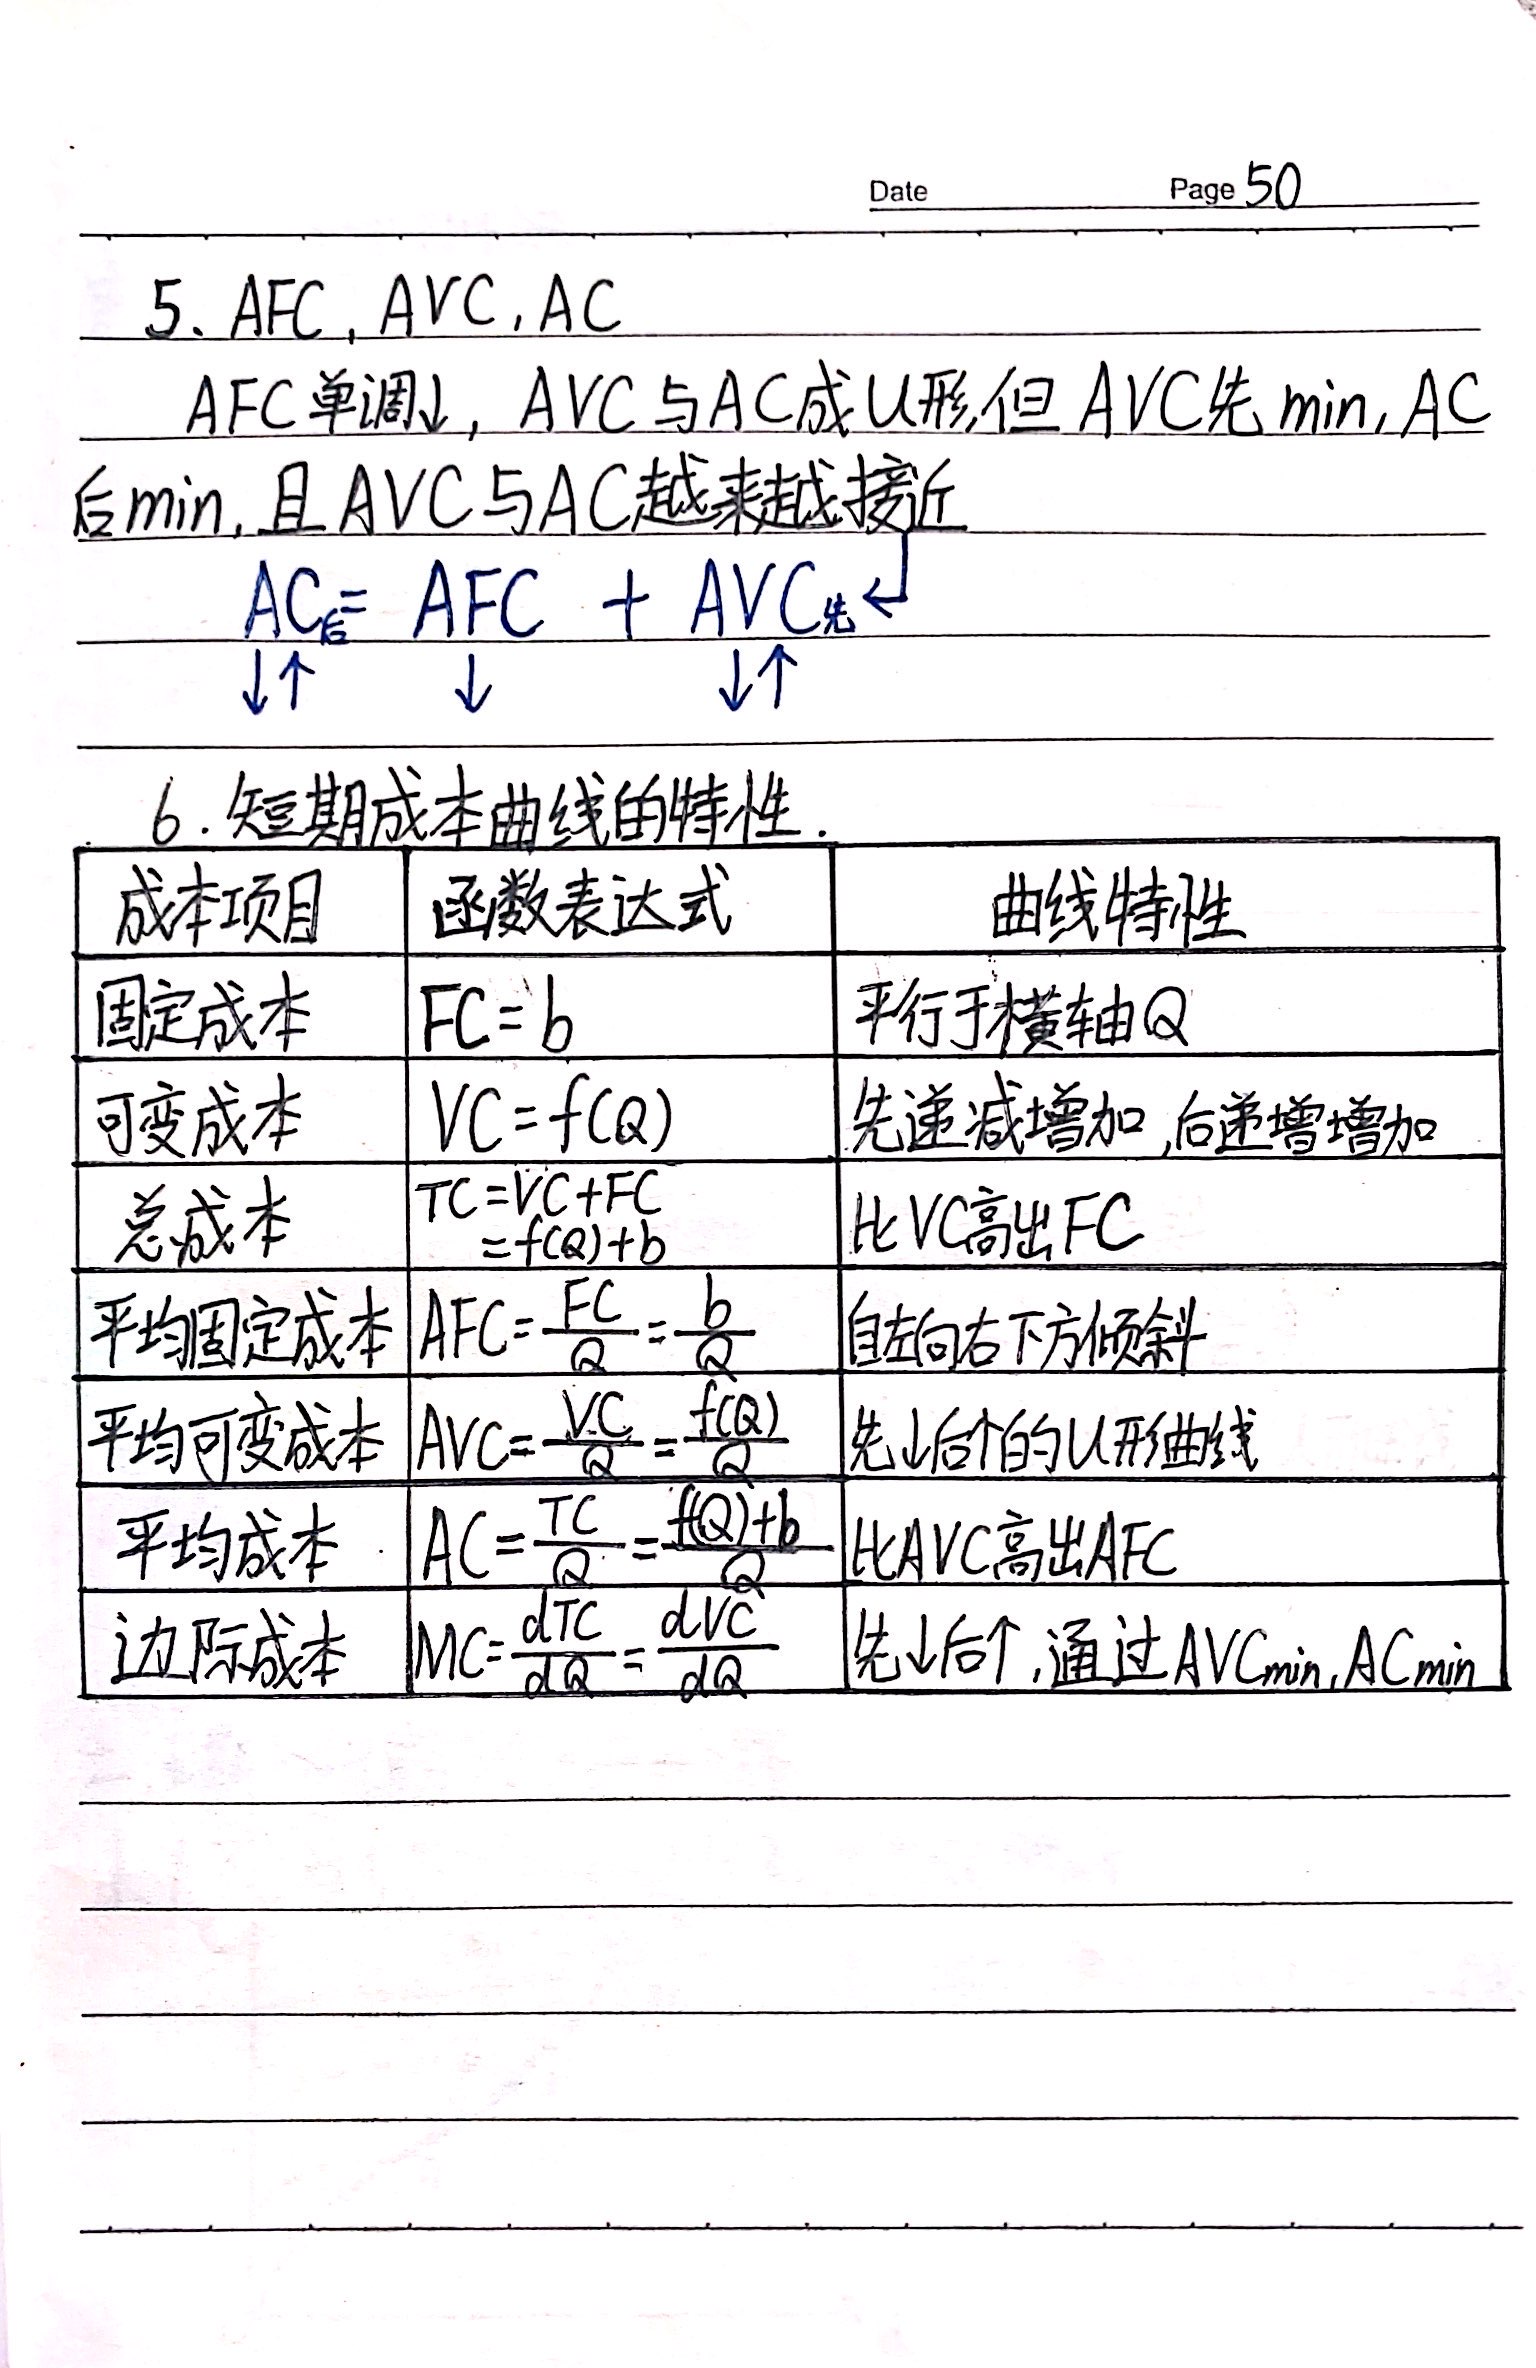 Date Page 50
5. AFC, AVC, AC
AFC单调↓, AVC与AC成U形,但AVC先min, AC
后min, 且AVC与AC越来越接近
AC后= AFC + AVC先 ↵
↓↑ ↓ ↓↑
6. 短期成本曲线的特性.
成本项目 函数表达式 曲线特性
固定成本 FC=b 平行于横轴Q
可变成本 VC=f(Q) 先递减增加,后递增增加
总成本 TC=VC+FC 比VC高出FC
=f(Q)+b
平均固定成本 AFC=FC/Q=b/Q 自左向右下方倾斜
平均可变成本 AVC=VC/Q=f(Q)/Q 先↓后↑的U形曲线
平均成本 AC=TC/Q=f(Q)+b/Q 比AVC高出AFC
边际成本 MC=dTC/dQ=dVC/dQ 先↓后↑,通过AVCmin, ACmin